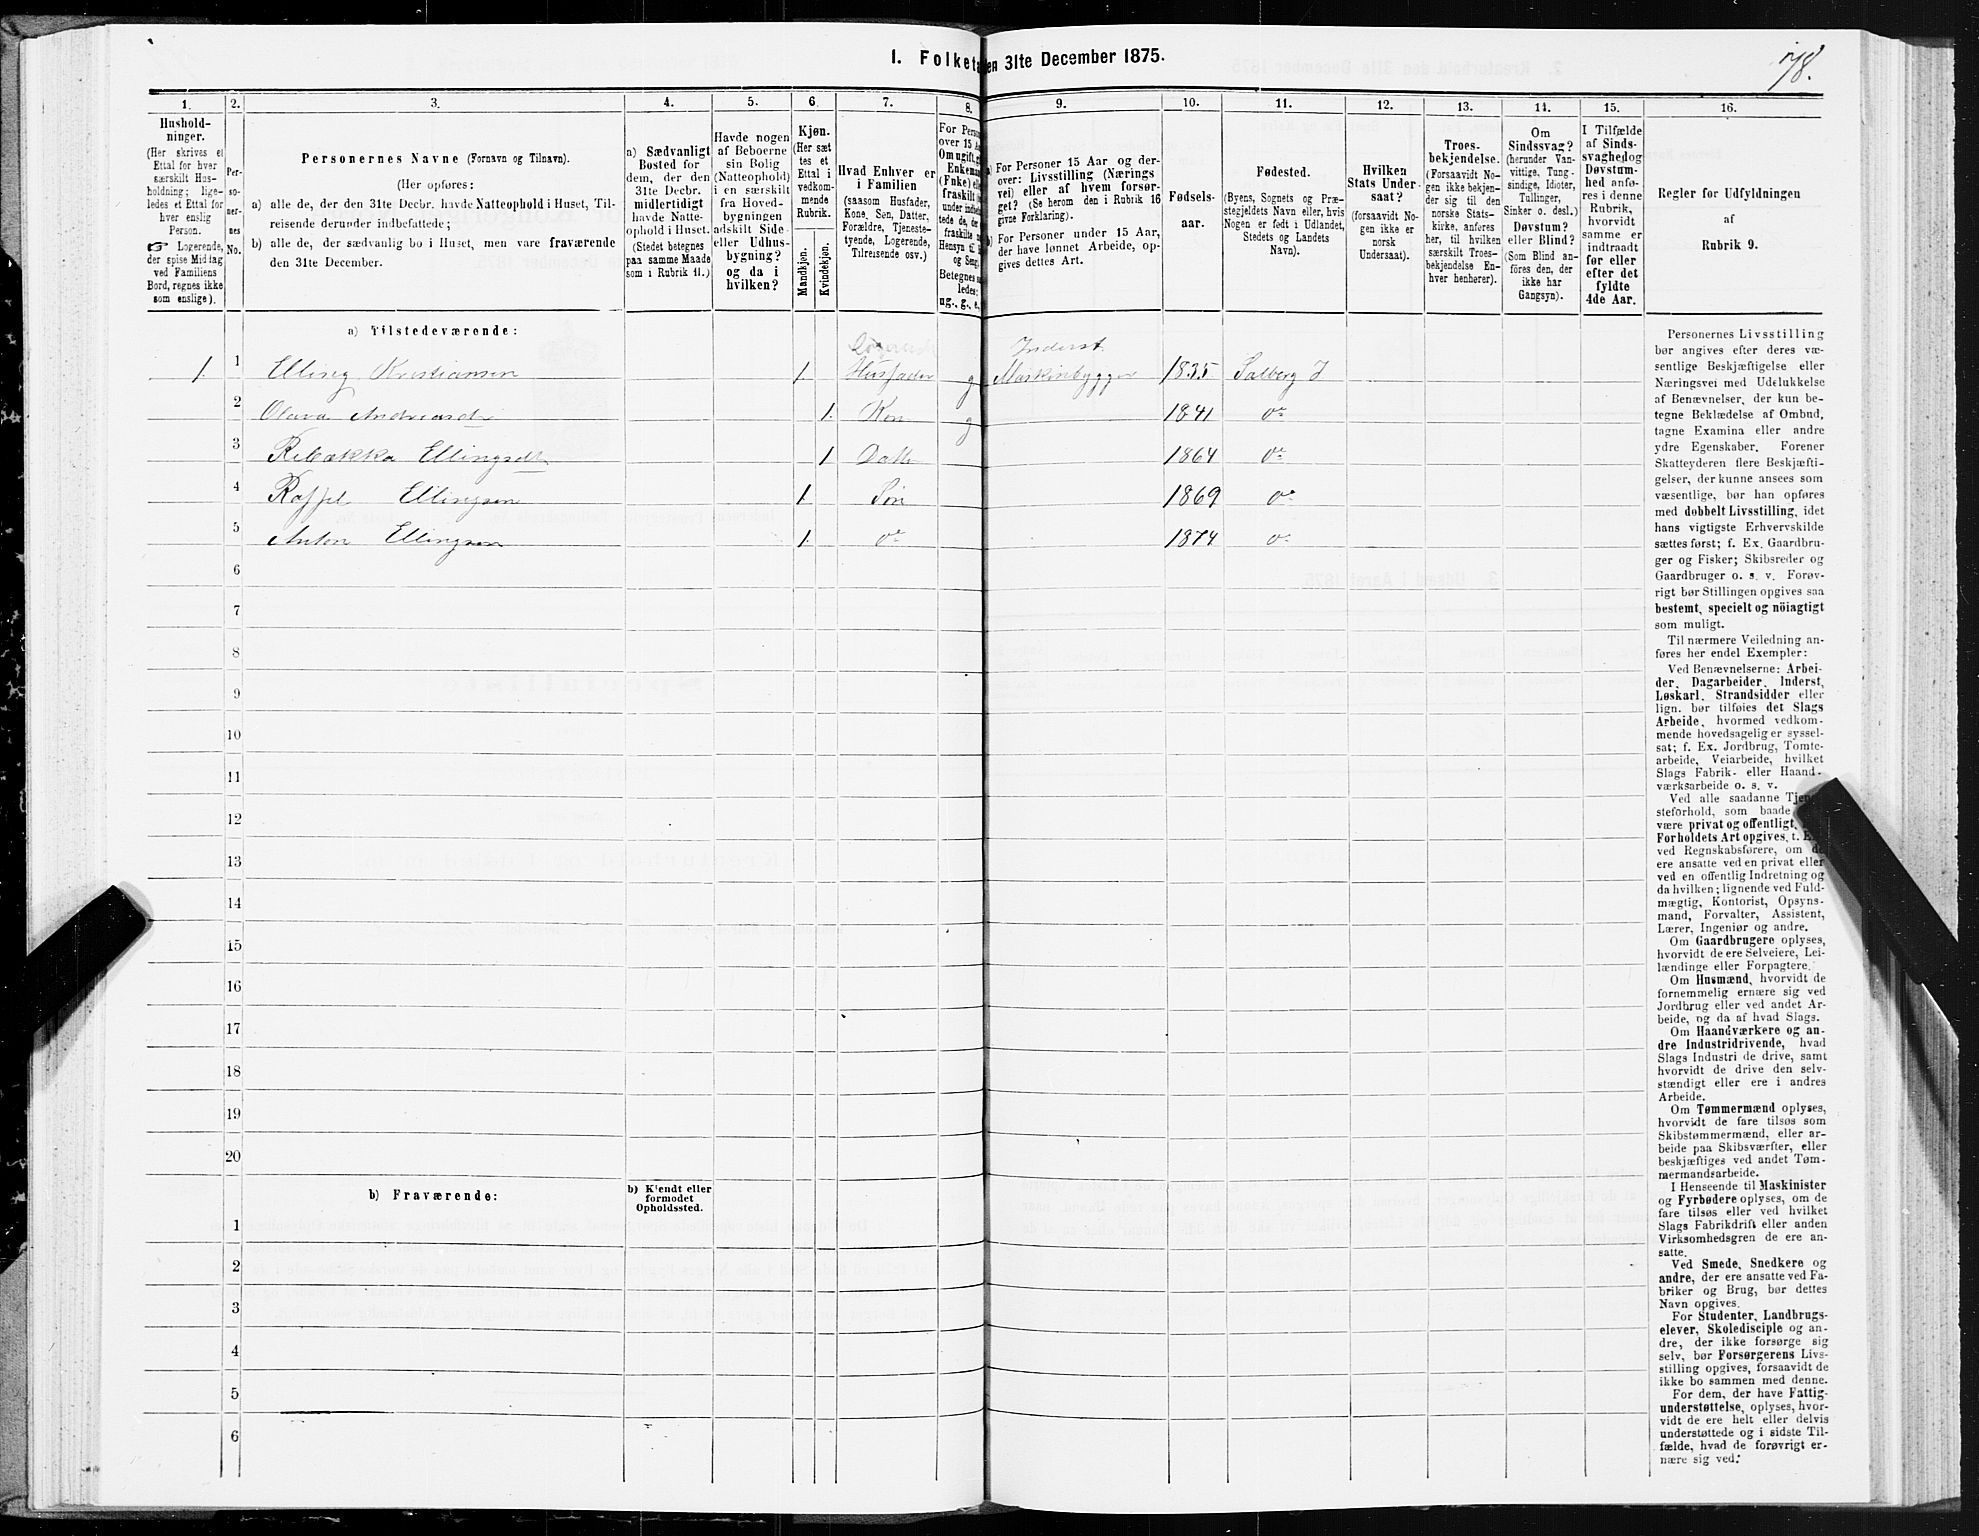 1. Folketa en 31te December 1875.
78.
1. 2. 3. 4. 5. 6. 7. 8. 9. 10. 11. 12. 13. 14. 15. 16.
Hushold-
ninger.
(Her skrives et
Ettal for hver
særskilt Hus-
holdning; lige-
ledes et Ettal for
hver enslig
Person.
☞ Logerende,
der spise Middag
ved Familiens
Bord, regnes ikke
som enslige).
Per-
so-
ner-
nes
No.
Personernes Navne (Fornavn og Tilnavn).
(Her opføres:
a) alle de, der den 31te Decbr. havde Natteophold i Huset, Til-
reisende derunder indbefattede;
b) alle de, der sædvanlig bo i Huset, men vare fraværende
den 31te December.
a) Sædvanligt
Bosted for
dem, der den
31te Decbr.
midlertidigt
havde Natte-
ophold i Huset.
(Stedet betegnes
paa samme Maade
som i Rubrik 11.)
Havde nogen
af Beboerne
sin Bolig
(Natteophold)
i en særskilt
fra Hoved-
bygningen
adskilt Side-
eller Udhus-
bygning?
og da i
hvilken?
Kjøn.
(Her sæt
tes et
Ettal i
vedkom-
mende
Rubrik.
Mandkjøn.
Kvindekjøn.
Hvad Enhver er
i Familien
(saasom Husfader,
Kone, Søn, Datter,
Forældre, Tjeneste-
tyende, Logerende,
Tilreisende osv.)
For Perso
over 15 A
Om ugift, g
Enkema
(Fnke) el
fraskilt
under indbe
tede de, d
fraskilte
Hensyn ti
og Seng.
Betegnes
ledes:
ug., g., e.
a) For Personer 15 Aar og der-
over: Livsstilling (Nærings
vei) eller af hvem forsør-
get? (Se herom den i Rubrik 16
givne Forklaring).
b) For Personer under 15 Aar,
der have lønnet Arbeide, op-
gives dettes Art.
Fødsels-
aar.
Fødested.
(Byens, Sognets og Præ-
stegjeldets Navn eller, hvis
Nogen er født i Udlandet,
Stedets og Landets
Navn).
Hvilken
Stats Under-
saat?
(forsaavidt No-
gen ikke er
norsk
Undersaat).
Troes-
bekjendelse.
(Forsaavidt No-
gen ikke bekjen-
der sig til den
norske Stats-
kirke, anføres
her, til hvilken
særskilt Troes-
bekjendelse En-
hver henhører).
Om
Sindssvag?
(herunder Van-
vittige, Tung-
sindige, Idioter,
Tullinger,
Sinker o. desl.)
Døvstum?
eller Blind?
(Som Blind an-
føres den, der
ikke har
Gangsyn).
I Tilfælde
af Sinds-
svaghed og
Døvstum-
hed anfø-
res i denne
Rubrik,
hvorvidt
samme er
indtraadt
før eller
efter det
fyldte
4de Aar.
Regler for Udfyldningen
af
Rubrik 9.
a) Tilstedeværende:
Logerende Inderst
1 1 Elling Kristiansen 1 Husfader g Maskinbygger 1835 Salberg I
2 Olava Andreasdt 1 Kon g 1841 do
3 Rebækka Ellingsdt 1 Datt 1864 do
4 Raffel Ellingsen 1 Søn 1869 do
5 Anton Ellingsen 1 do 1874 do
6
7
8
9
10
11
12
13
14
15
16
17
18
19
20
b) Fraværende:
b) Kjendt eller
formodet
Opholdssted.
1
2
3
4
5
6
Personernes Livsstilling
bør angives efter deres væ-
sentlige Beskjæftigelse eller
Næringsvei med Udelukkelse
af Benævnelser, der kun be-
tegne Beklædelse af Ombud,
tagne Examina eller andre
ydre Egenskaber. Forener
Skatteyderen flere Beskjæfti-
gelser, der kunne ansees som
væsentlige, bør han opføres
med dobbelt Livsstilling, idet
hans vigtigste Erhvervskilde
sættes først; f. Ex. Gaardbru-
ger og Fisker; Skibsreder og
Gaardbruger o. s. v. Forøv-
rigt bør Stillingen opgives saa
bestemt, specielt og nöiagtigt
som muligt.
Til nærmere Veiledning an-
føres her endel Exempler:
Ved Benævnelserne: Arbei-
der, Dagarbeider, Inderst,
Løskarl, Strandsidder eller
lign. bør tilføies det Slags
Arbeide, hvormed vedkom-
mende hovedsagelig er syssel-
sat; f. Ex. Jordbrug, Tomte-
arbeide, Veiarbeide, hvilket
Slags Fabrik- eller Haand-
værksarbeide o. s. v.
Ved alle saadanne Tjen
steforhold, som baade
være privat og offentligt,
Forholdets Art opgives, t. E
ved Regnskabsførere, om d
ere ansatte ved en privat eller
ved en offentlig Indretning og
da hvilken; lignende ved Fuld-
mægtig, Kontorist, Opsyns-
mand, Forvalter, Assistent,
Lærer, Ingeniør og andre.
Om Gaardbrugere oplyses,
hvorvidt de ere Selveiere, Lei-
lændinge eller Forpagtere.
Om Husmænd, hvorvidt de
fornemmelig ernære sig ved
Jordbrug eller ved andet Ar-
beide, og da af hvad Slags.
Om Haandværkere og an-
dre Industridrivende, hvad
Slags Industri de drive, samt
hvorvidt de drive den selv-
stændigt eller ere i andres
Arbeide.
Om Tømmermænd oplyses,
hvorvidt de fare tilsøs som
Skibstømmermænd, eller ar-
beide paa Skibsværfter, eller
beskjæftiges ved andet Tøm-
mermandsarbeide.
I Henseende til Maskinister
og Fyrbødere oplyses, om de
fare tilsøs eller ved hvilket
Slags Fabrikdrift eller anden
Virksomhedsgren de ere an-
satte.
Ved Smede, Snedkere og
andre, der ere ansatte ved Fa-
briker og Brug, bør dettes
Navn opgives.
For Studenter, Landbrugs-
elever, Skoledisciple og an-
dre, der ikke forsørge sig
selv, bør Forsørgerens Livs-
stilling opgives, forsaavidt de
ikke bo sammen med denne.
For dem, der have Fattig-
understøttelse, oplyses, hvor-
vidt de ere helt eller delvis
understøttede og i sidste Til-
fælde, hvad de forøvrigt er-
nære sig ved.